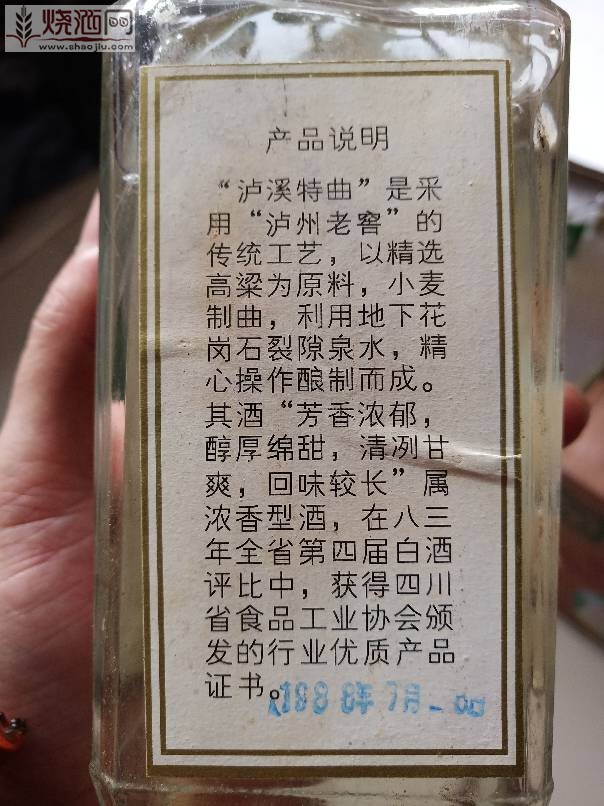 烧酒网
www.shaojiu.com
产品说明
“泸溪特曲”是采
用“泸州老窖”的
传统工艺，以精选
高粱为原料，小麦
制曲，利用地下花
岗石裂隙泉水，精
心操作酿制而成。
其酒“芳香浓郁，
醇厚绵甜，清冽甘
爽，回味较长”属
浓香型酒，在八三
年全省第四届白酒
评比中，获得四川
省食品工业协会颁
发的行业优质产品
证书。
1988年7月